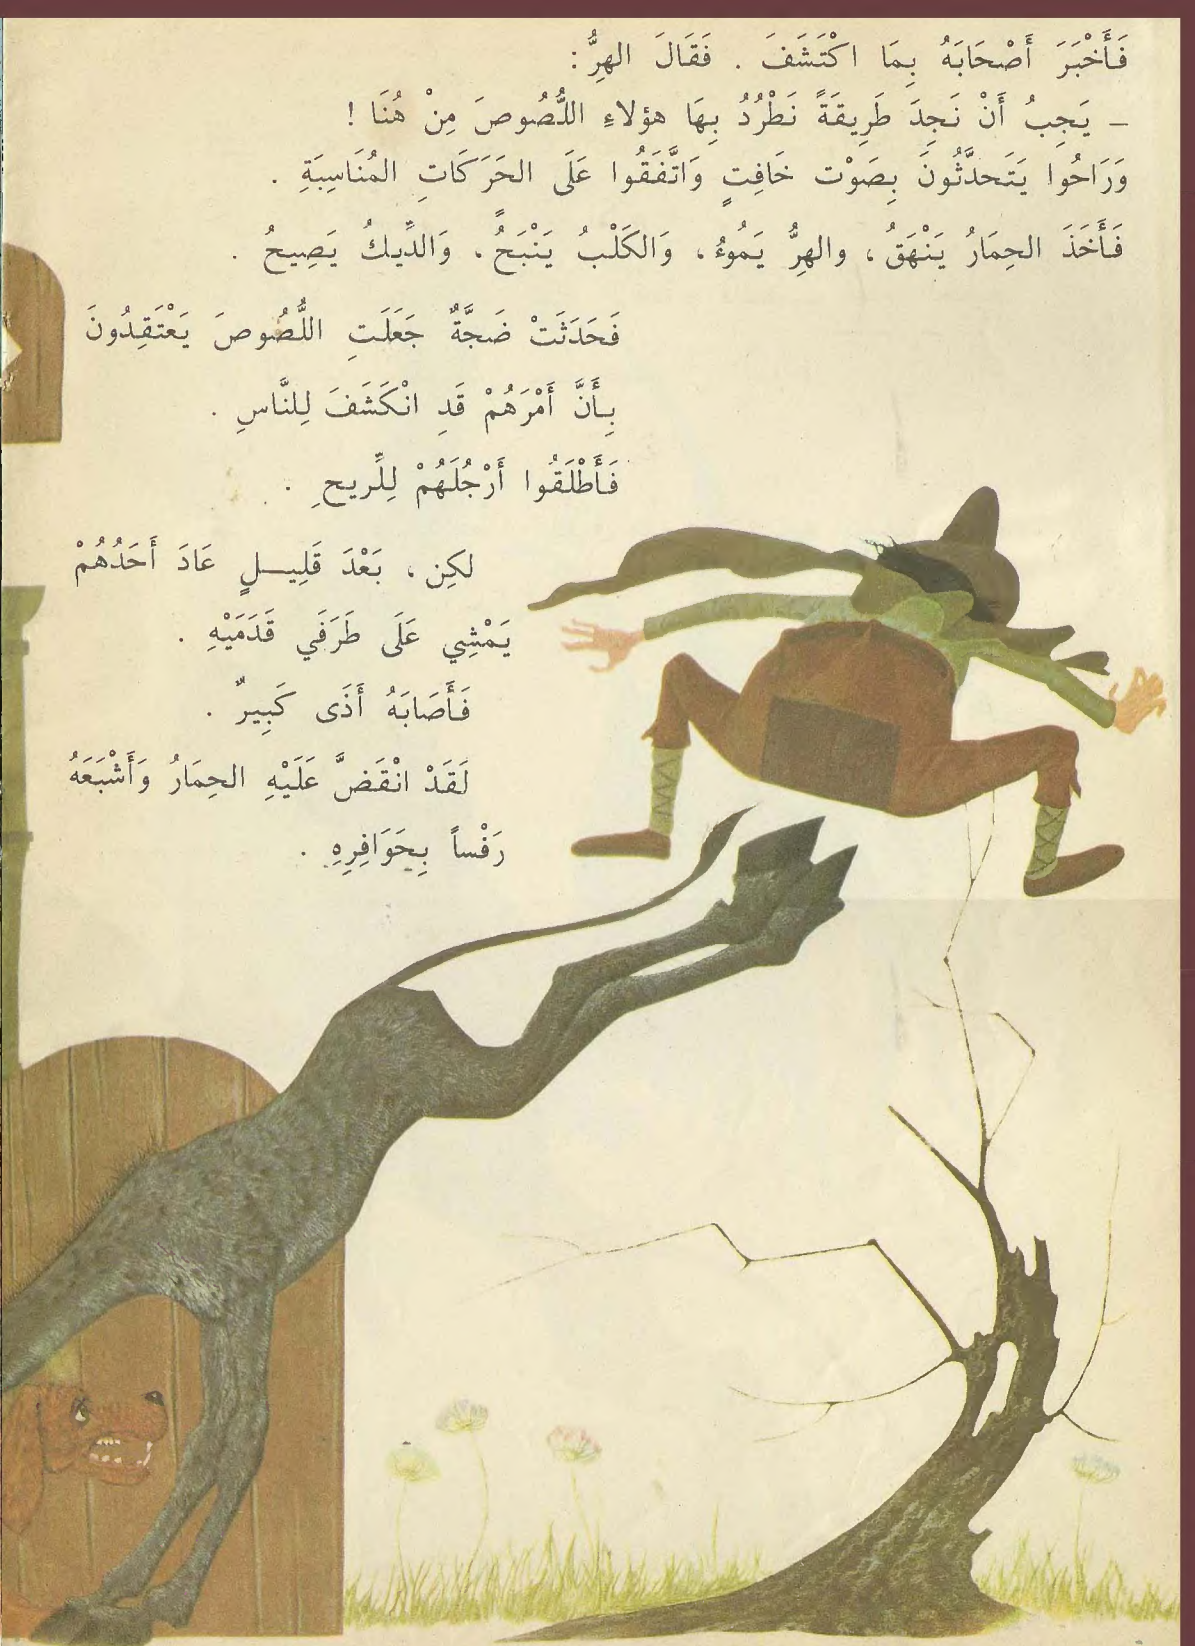 فَأَخْبَرَ أَصْحَابَهُ بِمَا اكْتَشَفَ . فَقَالَ الهِرُّ :
– يَجِبُ أَنْ نَجِدَ طَرِيقَةً نَطْرُدُ بِهَا هؤلاءِ اللُّصُوصَ مِنْ هُنَا !
وَرَاحُوا يَتَحدَّثُونَ بِصَوْت خَافِتٍ وَاتَّفَقُوا عَلَى الحَرَكَاتِ المُنَاسِبَةِ .
فَأَخَذَ الحِمَارُ يَنْهَقُ ، والهِرُّ يَمُوءُ ، وَالكَلْبُ يَنْبَحُ ، وَالدِّيكُ يَصِيحُ .
فَحَدَثَتْ ضَجَّةٌ جَعَلَتِ اللُّصُوصَ يَعْتَقِدُونَ
بِأَنَّ أَمْرَهُمْ قَدِ انْكَشَفَ لِلنَّاسِ .
فَأَطْلَقُوا أَرْجُلَهُمْ لِلِّريحِ .
لكِن ، بَعْدَ قَلِيـــلٍ عَادَ أَحَدُهُمْ
يَمْشِي عَلَى طَرَفَي قَدَمَيْهِ .
فَأَصَابَهُ أَذَى كَبِيرٌ .
لَقَدْ انْقَضَّ عَلَيْهِ الحِمَارُ وَأَشْبَعَهُ
رَفْساً بِحَوَافِرِهِ .